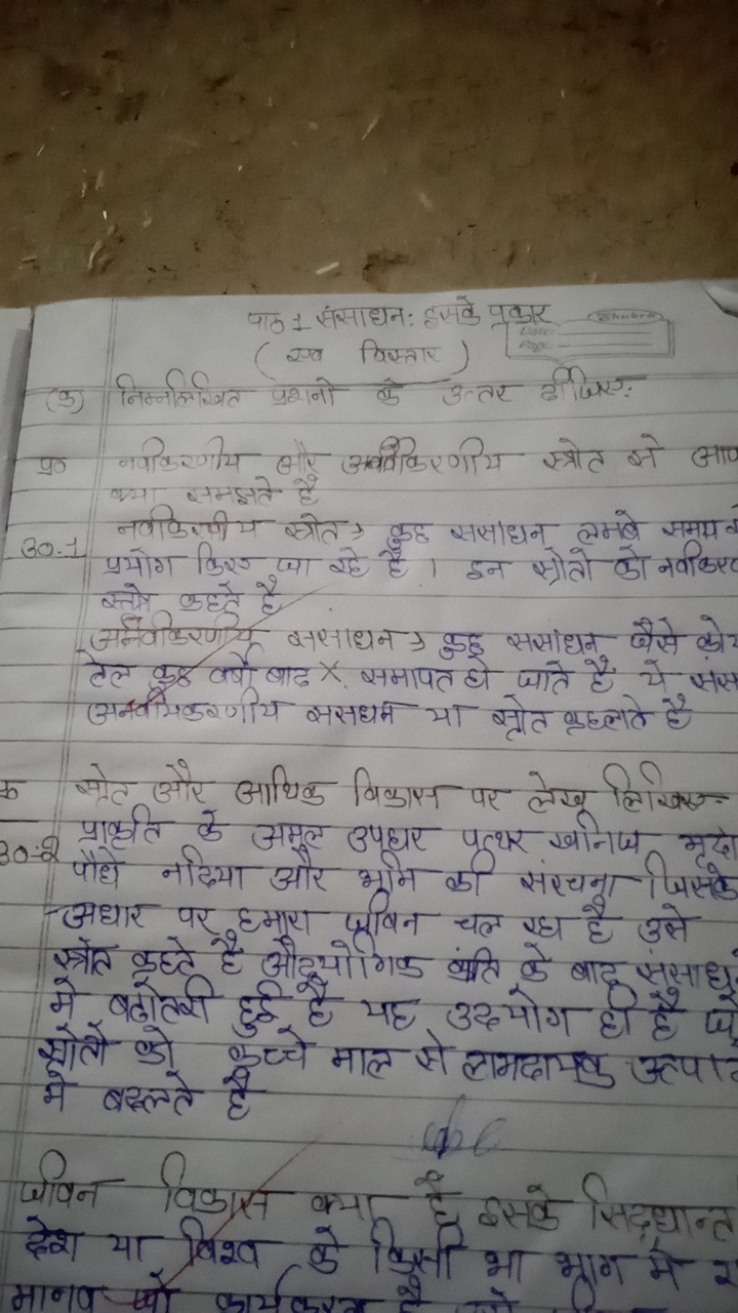 पाठ 1 संसाधन: इसके प्रकार
(एव विस्तार)
Date:
Page:
(क) निम्नलिखित प्रशनो के उत्तर दीजिए:
प्र० नवीकरणीय और अनवीकरणीय स्त्रोत से आप
क्या समझते है
नवीकिरणीय स्त्रोत→ कुछ ससाधन लमबे समय से
उ०.1 प्रयोग किए जा रहे है। इन स्त्रोतो को नवीकिरण
कहते है
अनवीकिरणीय ससाधन→ कुछ ससांधन जैसे कोय
तेल कुछ वर्षो बाद समापत हो जाते है ये संस
अनवीयकरणीय ससधम या स्त्रोत कहलाते है
स्त्रोत और आथिक विकास पर लेख लिखिए-
उ०-2 प्राकृति के अमुल उपधर पत्थर खनिज मृदा
पौधे नदिया और भूमि की संरचना जिसके
अधार पर हमारा जीवन चल रध है उसे
स्त्रोत कहते है औद्योगिक क्रांति के बाद संसाध
मे बढोतरी हुई है यह उदयोग ही है जो
स्त्रोतो को कच्चे माल से लाभदायक उत्पाद
मे बदलते है
जीवन विकास क्या है इसके सिद्धान्त
देश या विश्व के किसी भा भाग मे र
मानव जो कार्यकरता है